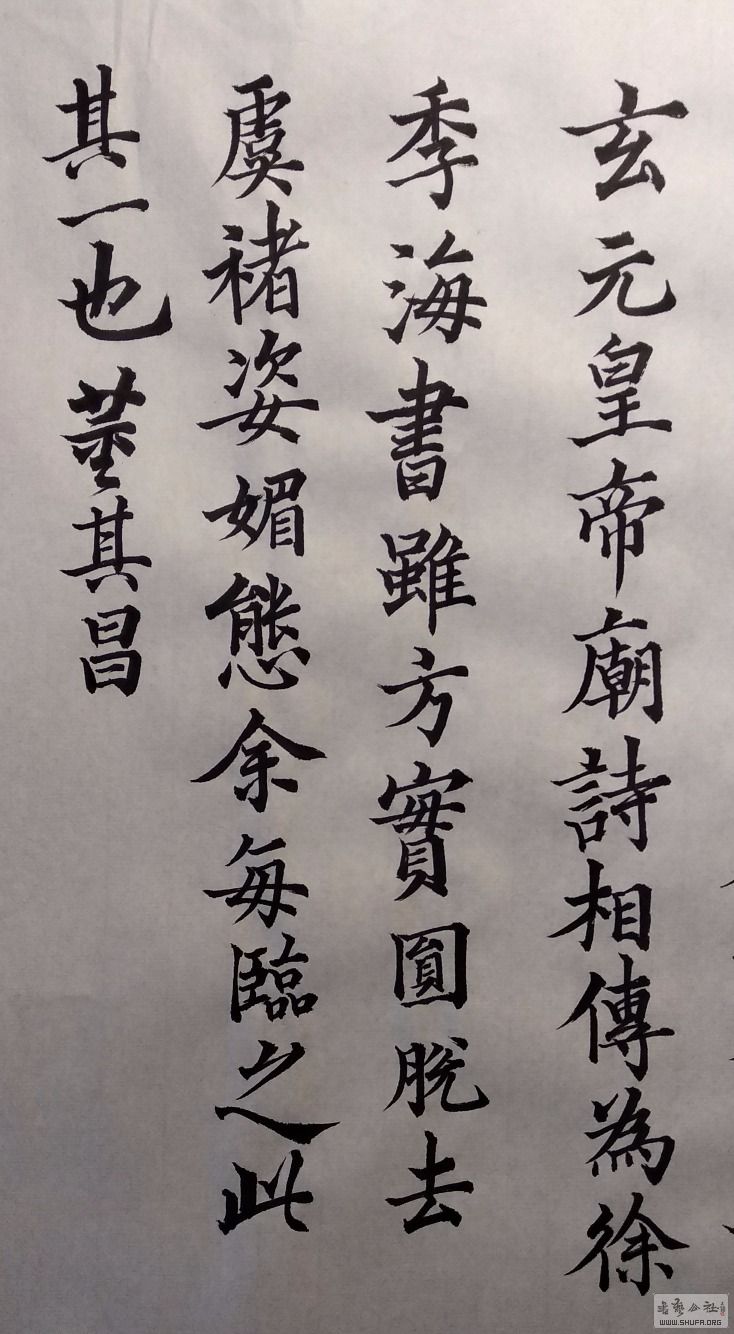 玄元皇帝廟詩相傳為徐
季海書雖方實圓脫去
虞褚姿媚態余每臨之此
其一也董其昌
書藝公社
WWW.SHUFA.ORG